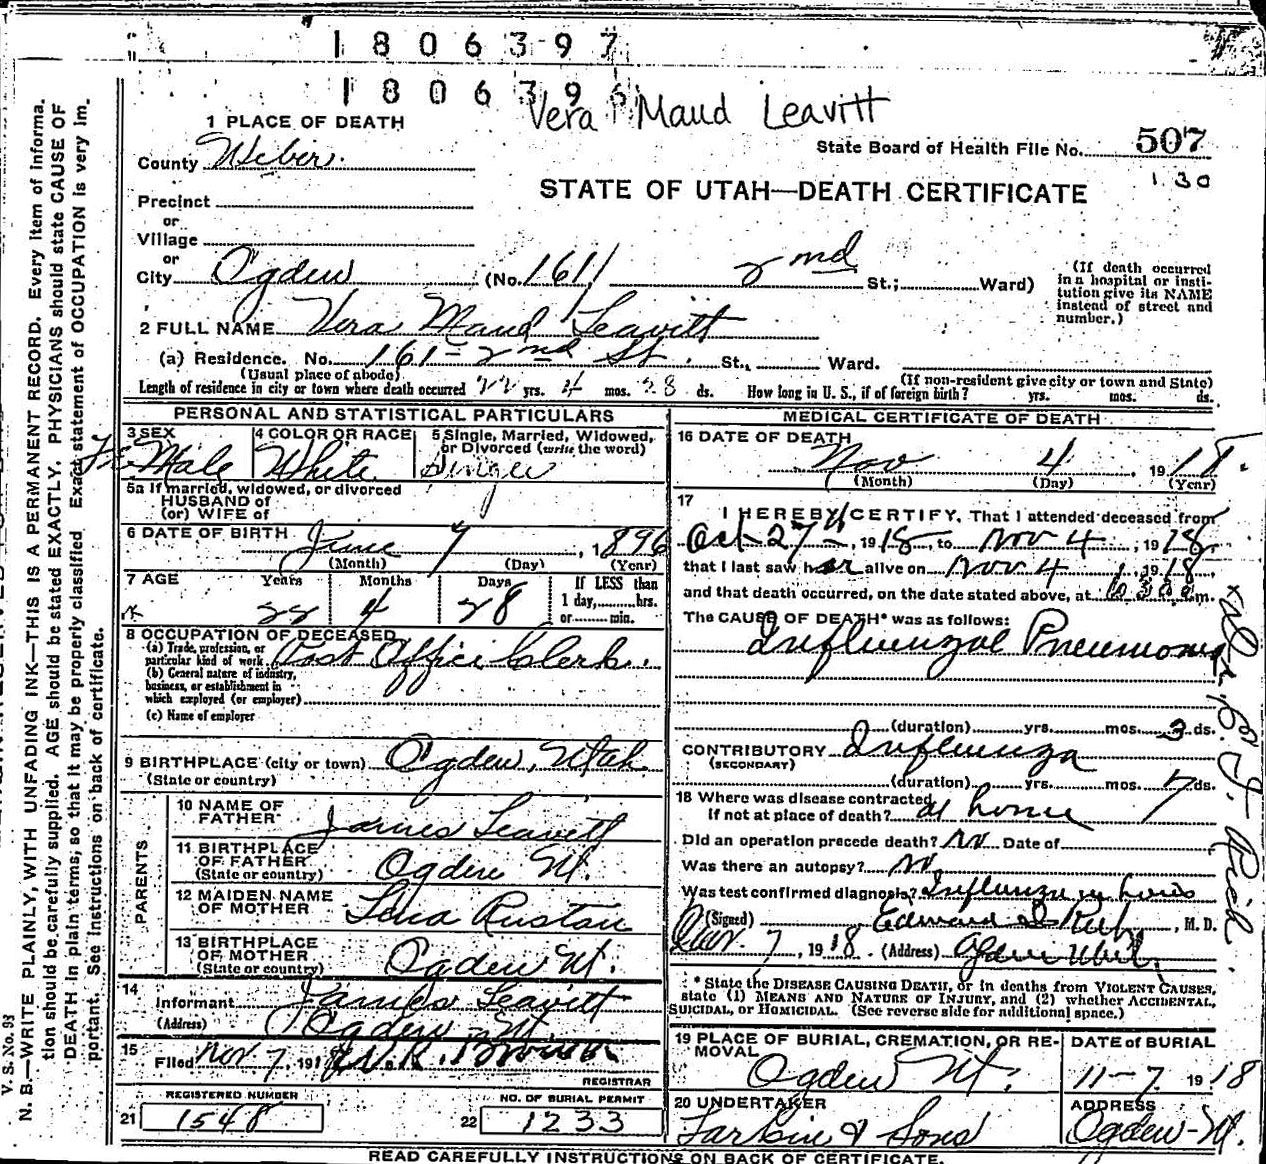 1806397
1806396
Vera Maud Leavitt
1 PLACE OF DEATH
County Weber.
State Board of Health File No. 507
130
STATE OF UTAH—DEATH CERTIFICATE
Precinct
or
Village
or
City Ogden (No. 161 2nd St.; Ward)
(If death occurred in a hospital or insti-
tution give its NAME
instead of street and
number.)
2 FULL NAME Vera Maud Leavitt
(a) Residence. No. 161-2nd St. St., Ward.
(Usual place of abode) (If non-resident give city or town and State)
Length of residence in city or town where death occurred 22 yrs. 4 mos. 28 ds. How long in U. S., if of foreign birth? yrs. mos. ds.
PERSONAL AND STATISTICAL PARTICULARS
3 SEX
Fe Male
4 COLOR OR RACE
White
5 Single, Married, Widowed,
or Divorced (write the word)
Single
5a If married, widowed, or divorced
HUSBAND of
(or) WIFE of
6 DATE OF BIRTH June 7, 1896
(Month) (Day) (Year)
7 AGE Years Months Days If LESS than
22 4 28 1 day, hrs.
or min.
8 OCCUPATION OF DECEASED
(a) Trade, profession, or
particular kind of work Post Office Clerk.
(b) General nature of industry,
business, or establishment in
which employed (or employer)
(c) Name of employer
9 BIRTHPLACE (city or town) Ogden, Utah
(State or country)
PARENTS
10 NAME OF
FATHER James Leavitt
11 BIRTHPLACE
OF FATHER
(State or country) Ogden Ut.
12 MAIDEN NAME
OF MOTHER Lena Ruston
13 BIRTHPLACE
OF MOTHER
(State or country) Ogden Ut.
14
Informant James Leavitt
(Address) Ogden Ut
15
Filed Nov 7, 191
REGISTRAR
REGISTERED NUMBER
21 1548
NO. OF BURIAL PERMIT
22 1233
MEDICAL CERTIFICATE OF DEATH
16 DATE OF DEATH
Nov 4, 1918.
(Month) (Day) (Year)
17
I HEREBY CERTIFY, That I attended deceased from
Oct 27th, 1918, to Nov 4, 1918,
that I last saw her alive on Nov 4, 1918,
and that death occurred, on the date stated above, at m.
The CAUSE OF DEATH* was as follows:
Influenzal Pneumonia
(duration) yrs. mos. 3 ds.
CONTRIBUTORY Influenza
(SECONDARY)
(duration) yrs. mos. 7 ds.
18 Where was disease contracted
if not at place of death? at home
Did an operation precede death? No Date of
Was there an autopsy? No
Was test confirmed diagnosis? Influenza in
(Signed) Edward I Rich, M. D.
Nov. 7, 1918. (Address) Ogden Utah.
* State the DISEASE CAUSING DEATH, or in deaths from VIOLENT CAUSES,
state (1) MEANS AND NATURE OF INJURY, and (2) whether ACCIDENTAL,
SUICIDAL, or HOMICIDAL. (See reverse side for additional space.)
19 PLACE OF BURIAL, CREMATION, OR RE-
MOVAL
Ogden Ut.
DATE of BURIAL
11-7 1918
20 UNDERTAKER
Larkin & Sons
ADDRESS
Ogden-Ut.
READ CAREFULLY INSTRUCTIONS ON BACK OF CERTIFICATE.
V. S. No. 93
N. B.—WRITE PLAINLY, WITH UNFADING INK—THIS IS A PERMANENT RECORD. Every item of informa-
tion should be carefully supplied. AGE should be stated EXACTLY. PHYSICIANS should state CAUSE OF
DEATH in plain terms, so that it may be properly classified. Exact statement of OCCUPATION is very im-
portant. See Instructions on back of certificate.